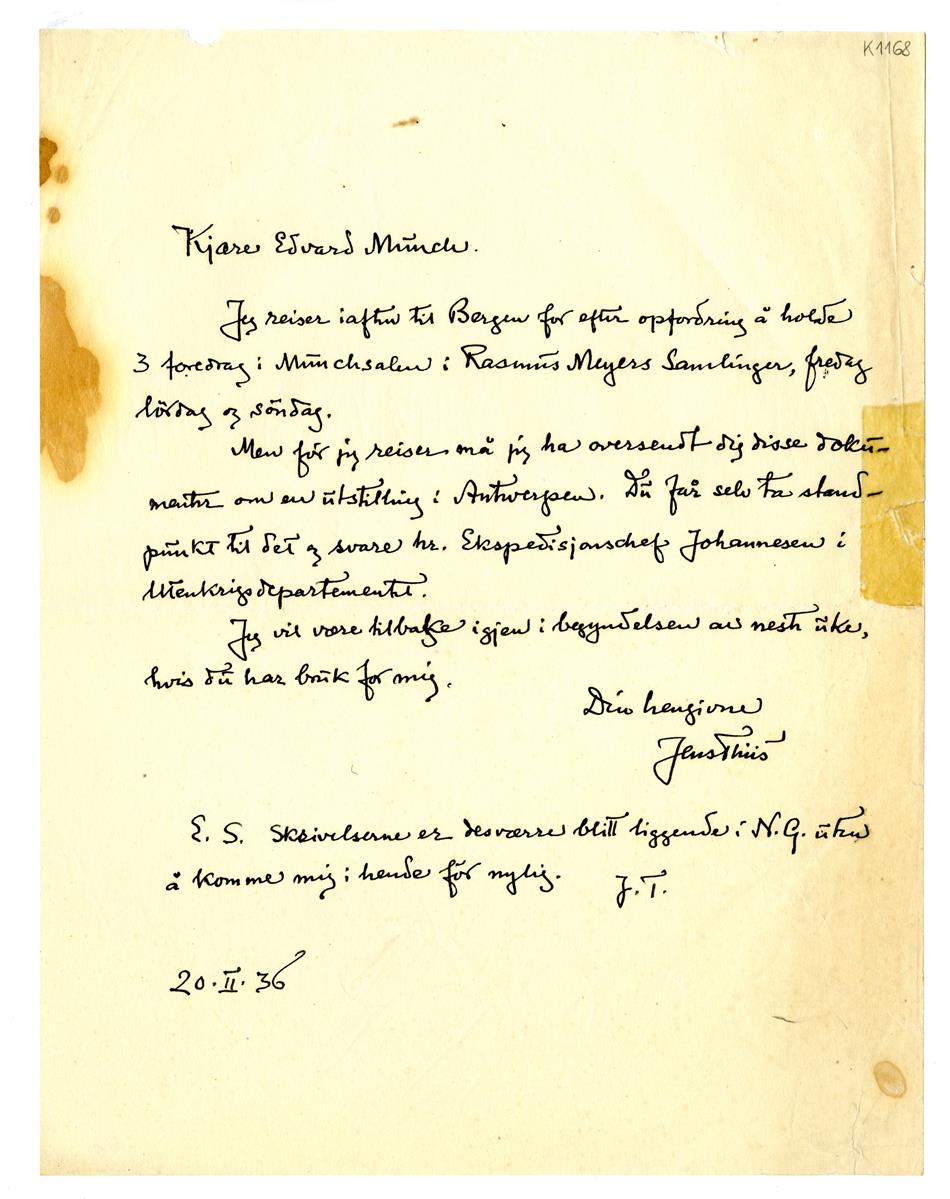 K1168
Kjære Edvard Munch.
Jeg reiser iaften til Bergen for efter opfordring å holde
3 foredrag i Munchsalen i Rasmus Meyers Samlinger, fredag
lördag og söndag.
Men för jeg reiser må jeg ha oversendt dig disse doku-
menter om en utstilling i Antwerpen. Du får selv ta stand-
punkt til det og svare hr. Ekspedisjonschef Johannesen i
Utenkrigsdepartementet.
Jeg vil være tilbake igjen i begyndelsen av neste uke,
hvis du har bruk for mig.
Din hengivne
Jens Thiis
E. S. Skrivelserne er desværre blitt liggende i N.G. uten
å komme mig i hende för nylig.
J. T.
20. II. 36